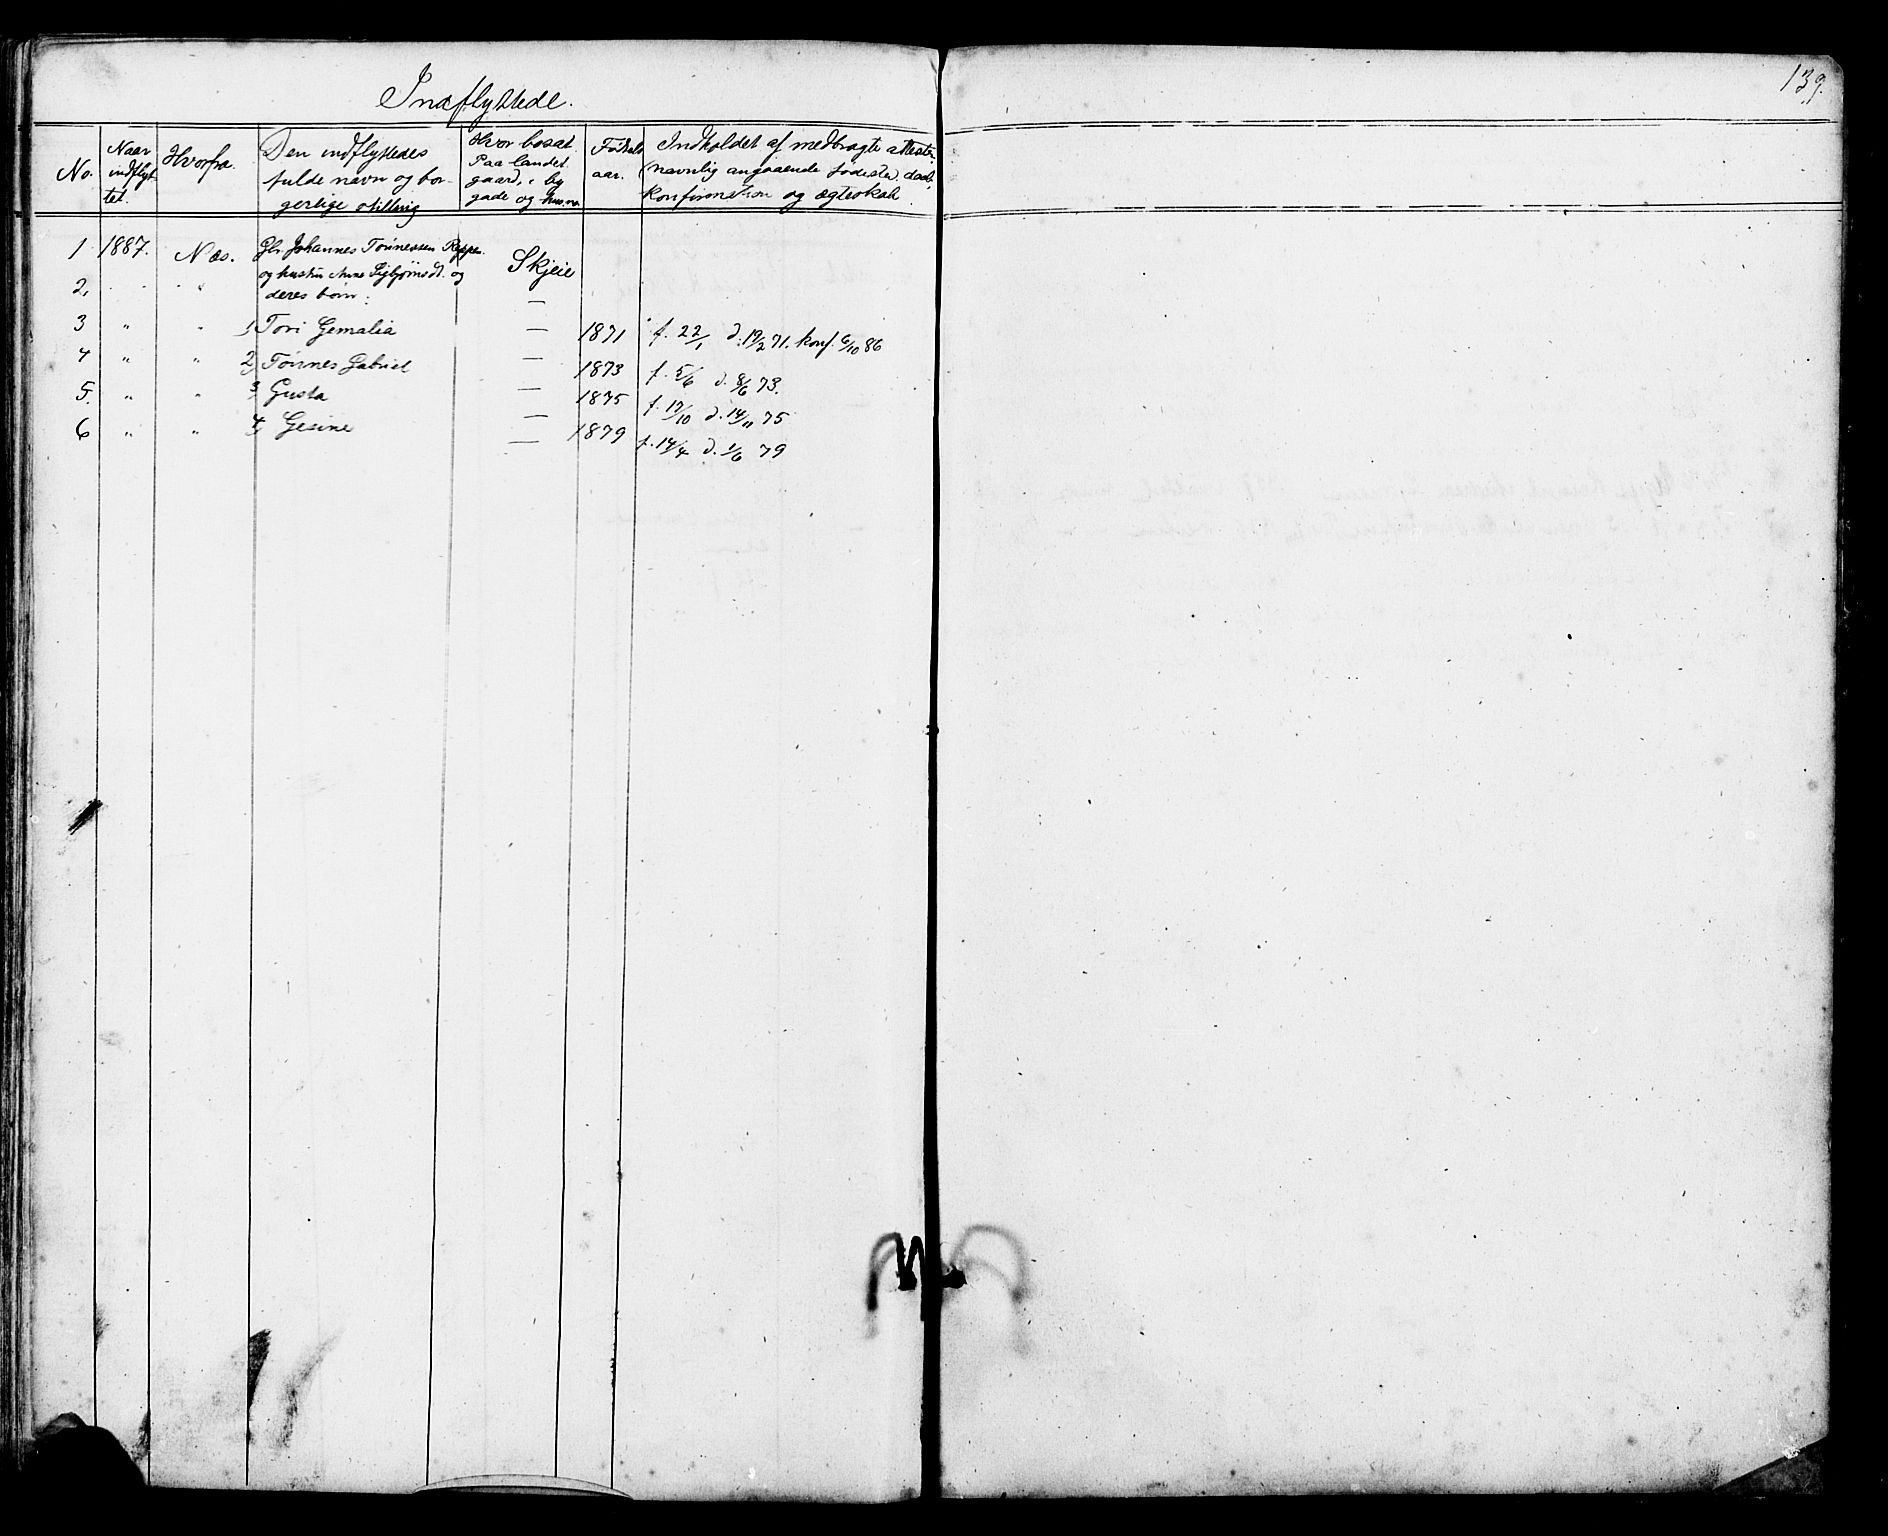 Indflyttede.
139.
No.
Naar indflyt- tet.
Hvorfra.
Den indflyttedes fulde navn og bor- gerlige stilling
Hvor bosat. Paa landet gaard, i by gade og hus no.
Fødsels aar.
Indholdet af medbragte attester (navnlig angaaende fødested, daab, konfirmation og ægteskab.
1 1887. Næs. Johannes Tønnessen Reppe. Skjeie
og hustru Anne Sigbjørnsd. og
2, . . " deres børn: —
3 " " 1, Tori Gemalia — 1871 f. 22/1 d. 19/2 71. konf. 6/10 86
4 " " 2, Tønnes Gabriel — 1873 f. 5/6 d. 8/6 73.
5. " " 3, Gusta — 1875 f. 17/10 d. 14/11 75
6 " " 4, Gesine — 1879 f. 14/4 d. 1/6 79